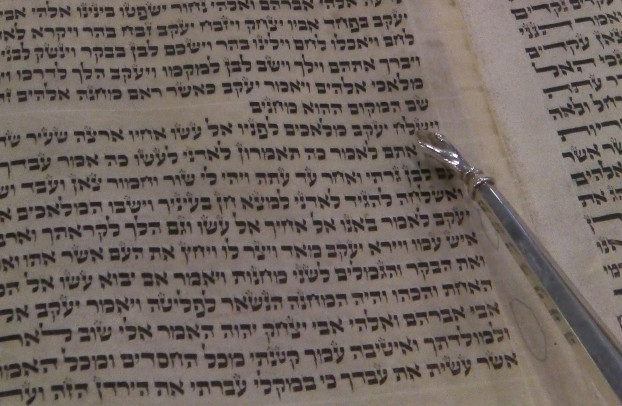 אלהי אברהם ואלהי נחור ישפטו בינינו אלהי
יעקב בפחד אביו יצחק ויזבח יעקב זבח בהר ויקרא
לחם ויאכלו לחם וילינו בהר וישכם לבן בבקר וינשק
ויברך אתהם וילך וישב לבן למקמו ויעקב הלך לדרכו
מלאכי אלהים ויאמר יעקב כאשר ראם מחנה אלהים
שם המקום ההוא מחנים
וישלח יעקב מלאכים לפניו אל עשו אחיו ארצה שעיר
אתם לאמר כה תאמרון לאדני לעשו כה אמר עבדך
עם לבן גרתי ואחר עד עתה ויהי לי שור וחמור צאן ועבד
ואשלחה להגיד לאדני למצא חן בעיניך וישבו המלאכים
יעקב לאמר באנו אל אחיך אל עשו וגם הלך לקראתך
איש עמו ויירא יעקב מאד ויצר לו ויחץ את העם אשר אתו
ואת הבקר והגמלים לשני מחנות ויאמר אם יבוא עשו אל
האחת והכהו והיה המחנה הנשאר לפליטה ויאמר יעקב
אבי אברהם ואלהי אבי יצחק יהוה האמר אלי שוב
ולמולדתך ואיטיבה עמך קטנתי מכל החסדים ומכל
אשר עשית את עבדך כי במקלי עברתי את הירדן הזה